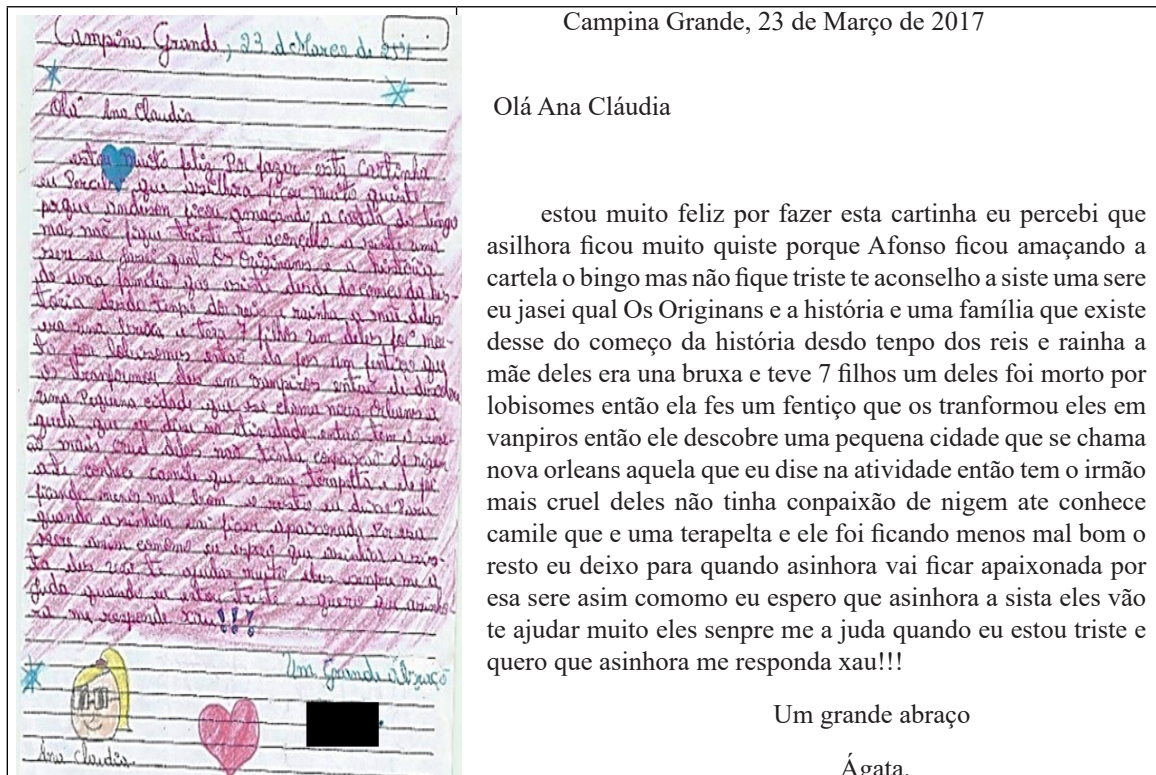 Campina Grande, 23 d Março de 2017
Olá Ana Claudia
estou muito feliz Por fazer esta cartinha
eu Percibi que asilhora ficou muito quiste
porque ficou amaçando a cartela do bingo
mas não fique triste te aconcelho a siste uma
sere eu jasei qual Os Originans e a história
de uma família que existe desde do começo da his-
toria desdo tenpo dos reis e rainha a mãe deles
era una bruxa e teve 7 filhos um deles foi mor-
to por lobisomes então ela fes um fentiço que
os tranformou eles em vanpiros então ele descobre
uma Pequena cidade que se chama nova orleans a
quela que eu dise na atividade então tem o irmão
mais cruel deles não tinha conpaixão de nigem
ate conhece camile que e uma terapelta e ele foi
ficando menos mal bom o resto eu deixo Para
quando asinhora vai ficar apaixonada Por esa
sere asim comomo eu espero que asinhora a sis-
ta eles vão te ajudar muito eles senpre me a
juda quando eu estou triste e quero que asinho-
ra me responda xau!!!
Um Grande abraço
Ana Claudia
Campina Grande, 23 de Março de 2017
Olá Ana Cláudia
estou muito feliz por fazer esta cartinha eu percebi que
asilhora ficou muito quiste porque Afonso ficou amaçando a
cartela o bingo mas não fique triste te aconselho a siste uma sere
eu jasei qual Os Originans e a história e uma família que existe
desse do começo da história desdo tenpo dos reis e rainha a
mãe deles era una bruxa e teve 7 filhos um deles foi morto por
lobisomes então ela fes um fentiço que os tranformou eles em
vanpiros então ele descobre uma pequena cidade que se chama
nova orleans aquela que eu dise na atividade então tem o irmão
mais cruel deles não tinha conpaixão de nigem ate conhece
camile que e uma terapelta e ele foi ficando menos mal bom o
resto eu deixo para quando asinhora vai ficar apaixonada por
esa sere asim comomo eu espero que asinhora a sista eles vão
te ajudar muito eles senpre me a juda quando eu estou triste e
quero que asinhora me responda xau!!!
Um grande abraço
Ágata.